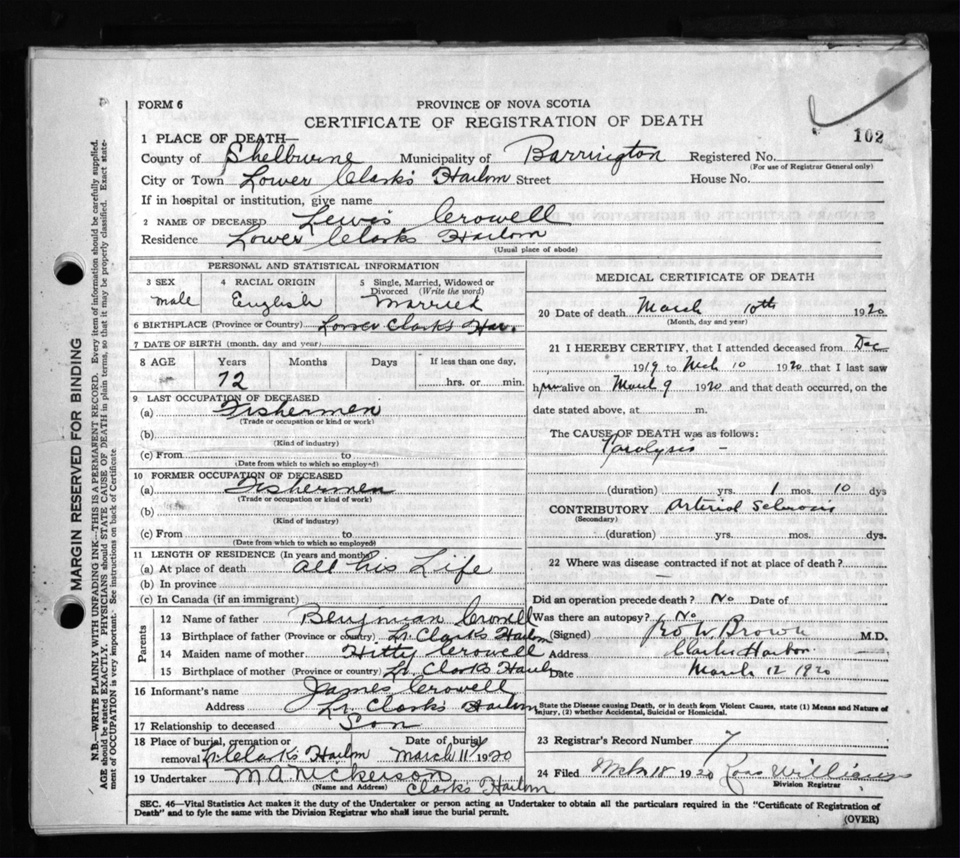 FORM 6
PROVINCE OF NOVA SCOTIA
CERTIFICATE OF REGISTRATION OF DEATH
102
1 PLACE OF DEATH—
County of Shelburne Municipality of Barrington Registered No.
(For use of Registrar General only)
City or Town Lower Clark's Harbor Street House No.
If in hospital or institution, give name
2 NAME OF DECEASED Lewis Crowell
Residence Lower Clarks Harbor
(Usual place of abode)
PERSONAL AND STATISTICAL INFORMATION
3 SEX male
4 RACIAL ORIGIN English
5 Single, Married, Widowed or Divorced (Write the word) Married
6 BIRTHPLACE (Province or Country) Lower Clark's Har.
7 DATE OF BIRTH (month, day and year)
8 AGE Years Months Days If less than one day,
72 hrs. or min.
9 LAST OCCUPATION OF DECEASED
(a) Fishermen
(Trade or occupation or kind or work)
(b)
(Kind of industry)
(c) From to
(Date from which to which so employed)
10 FORMER OCCUPATION OF DECEASED
(a) Fishermen
(Trade or occupation or kind of work)
(b)
(Kind of industry)
(c) From to
(Date from which to which so employed)
11 LENGTH OF RESIDENCE (In years and months)
(a) At place of death all his Life
(b) In province
(c) In Canada (if an immigrant)
Parents
12 Name of father Benjiman Crowell
13 Birthplace of father (Province or country) Lr. Clarks Harbor
14 Maiden name of mother Hitty Crowell
15 Birthplace of mother (Province or country) Lr. Clarks Harbor
16 Informant's name James Crowell
Address Lr. Clarks Harbor
17 Relationship to deceased Son
18 Place of burial, cremation or removal Lr Clarks Harbor Date of burial March 11 1920
19 Undertaker M A Nickerson
(Name and Address) Clarks Harbor
MEDICAL CERTIFICATE OF DEATH
20 Date of death March 10th 1920
(Month, day and year)
21 I HEREBY CERTIFY, that I attended deceased from Dec
1919 to Mch 10 1920 that I last saw
him alive on March 9 1920 and that death occurred, on the
date stated above, at m.
The CAUSE OF DEATH was as follows:
Paralysis —
(duration) yrs. 1 mos. 10 dys
CONTRIBUTORY Arterial Sclerosis
(Secondary)
(duration) yrs. mos. dys.
22 Where was disease contracted if not at place of death?
—
Did an operation precede death? No Date of
Was there an autopsy? No
(Signed) Geo W Brown M.D.
Address Clarks Harbor
Date March 12 1920
State the Disease causing Death, or in death from Violent Causes, state (1) Means and Nature of
Injury, (2) whether Accidental, Suicidal or Homicidal.
23 Registrar's Record Number 7
24 Filed Mch 18 1920 Ross Williams
Division Registrar
SEC. 46—Vital Statistics Act makes it the duty of the Undertaker or person acting as Undertaker to obtain all the particulars required in the "Certificate of Registration of
Death" and to fyle the same with the Division Registrar who shall issue the burial permit.
(OVER)
MARGIN RESERVED FOR BINDING
N.B.—WRITE PLAINLY WITH UNFADING INK—THIS IS A PERMANENT RECORD. Every item of information should be carefully supplied.
AGE should be stated EXACTLY. PHYSICIANS should STATE CAUSE OF DEATH in plain terms, so that it may be properly classified. Exact state-
ment of OCCUPATION is very important. See instructions on back of Certificate